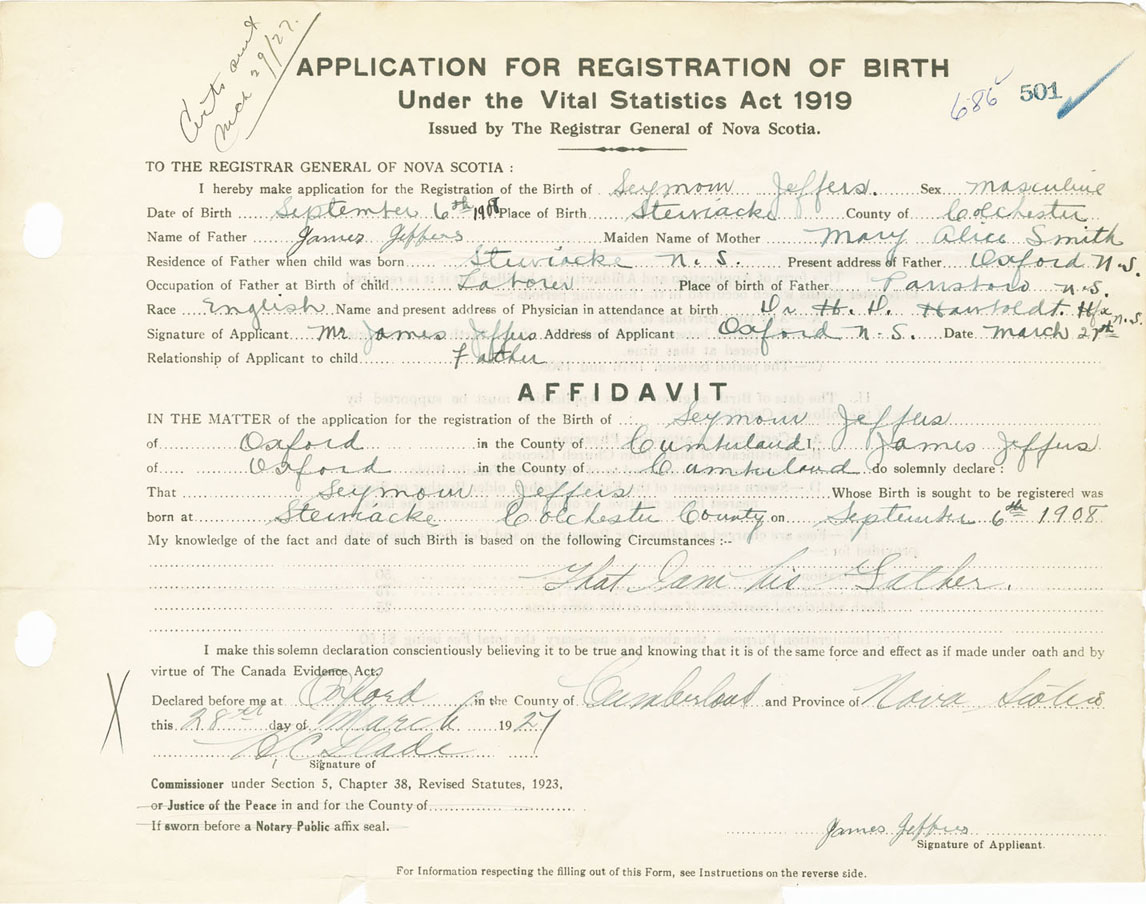 Certs sent
Mch 29/27.
APPLICATION FOR REGISTRATION OF BIRTH
686 501
Under the Vital Statistics Act 1919
Issued by The Registrar General of Nova Scotia.
TO THE REGISTRAR GENERAL OF NOVA SCOTIA :
I hereby make application for the Registration of the Birth of Seymour Jeffers. Sex masculine
Date of Birth September 6th 1908 Place of Birth Stewiacke County of Colchester
Name of Father James Jeffers Maiden Name of Mother Mary Alice Smith
Residence of Father when child was born Stewiacke N.S. Present address of Father Oxford N.S.
Occupation of Father at Birth of child Laborer Place of birth of Father N.S.
Race English Name and present address of Physician in attendance at birth Dr H. D. Hfx N.S.
Signature of Applicant Mr James Jeffers Address of Applicant Oxford N.S. Date March
Relationship of Applicant to child Father
AFFIDAVIT
IN THE MATTER of the application for the registration of the Birth of Seymour Jeffers
of Oxford in the County of Cumberland I, James Jeffers
of Oxford in the County of Cumberland do solemnly declare :
That Seymour Jeffers Whose Birth is sought to be registered was
born at Stewiacke Colchester County on September 6th 1908
My knowledge of the fact and date of such Birth is based on the following Circumstances :--
That I am his Father.
I make this solemn declaration conscientiously believing it to be true and knowing that it is of the same force and effect as if made under oath and by
virtue of The Canada Evidence Act.
Declared before me at Oxford in the County of Cumberland and Province of Nova Scotia
this 28 day of March 1927
Signature of
Commissioner under Section 5, Chapter 38, Revised Statutes, 1923,
or Justice of the Peace in and for the County of
If sworn before a Notary Public affix seal.
James Jeffers
Signature of Applicant.
For Information respecting the filling out of this Form, see Instructions on the reverse side.